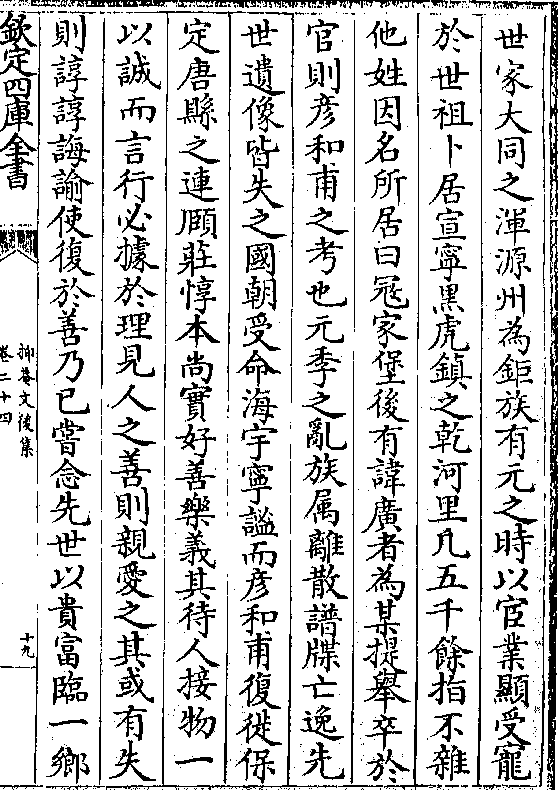 世家大同之渾源州為鉅族有元之時以宦業顯受寵
於世祖卜居宣寧黑虎鎮之乾河里凡五千餘指不雜
他姓因名所居曰冦家堡後有諱廣者為某提舉卒於
官則彦和甫之考也元季之亂族属離散譜牒亡逸先
世遺像皆失之國朝受命海宇寧謐而彦和甫復徙保
定唐縣之連頋莊惇本尚實好善樂義其待人接物一
以誠而言行必據於理見人之善則親愛之其或有失
則諄諄誨諭使復於善乃已嘗念先世以貴富臨一鄉
欽定四庫全書
抑菴文後集
卷二十四
十九